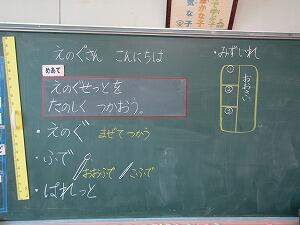 えのぐさん こんにちは
めあて
えのぐせっとを
たのしく つかおう。
・えのぐ まぜて つかう
・ふで
おおふで こふで
・ぱれっと
・みずいれ
①
②
③
おおきい